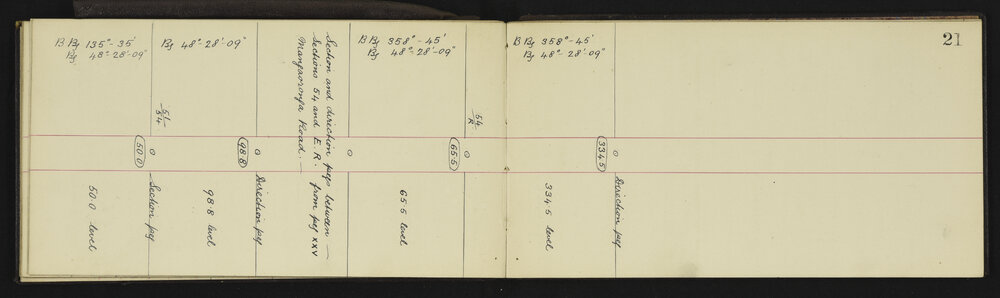 21
B Bg 135°-35'
Bg 48°-28'-09"
Bg 48°-28'-09"
B Bg 358°-45'
Bg 48°-28'-09"
B Bg 358°-45'
Bg 48°-28'-09"
51/54
54/R
Section and direction pegs between —
Sections 54 and E.R. from peg XXV
Mangaoronga Road. —
50.0
98.8
65.5
334.5
Section peg
50.0 level
Direction peg
98.8 level
65.5 level
Direction peg
334.5 level